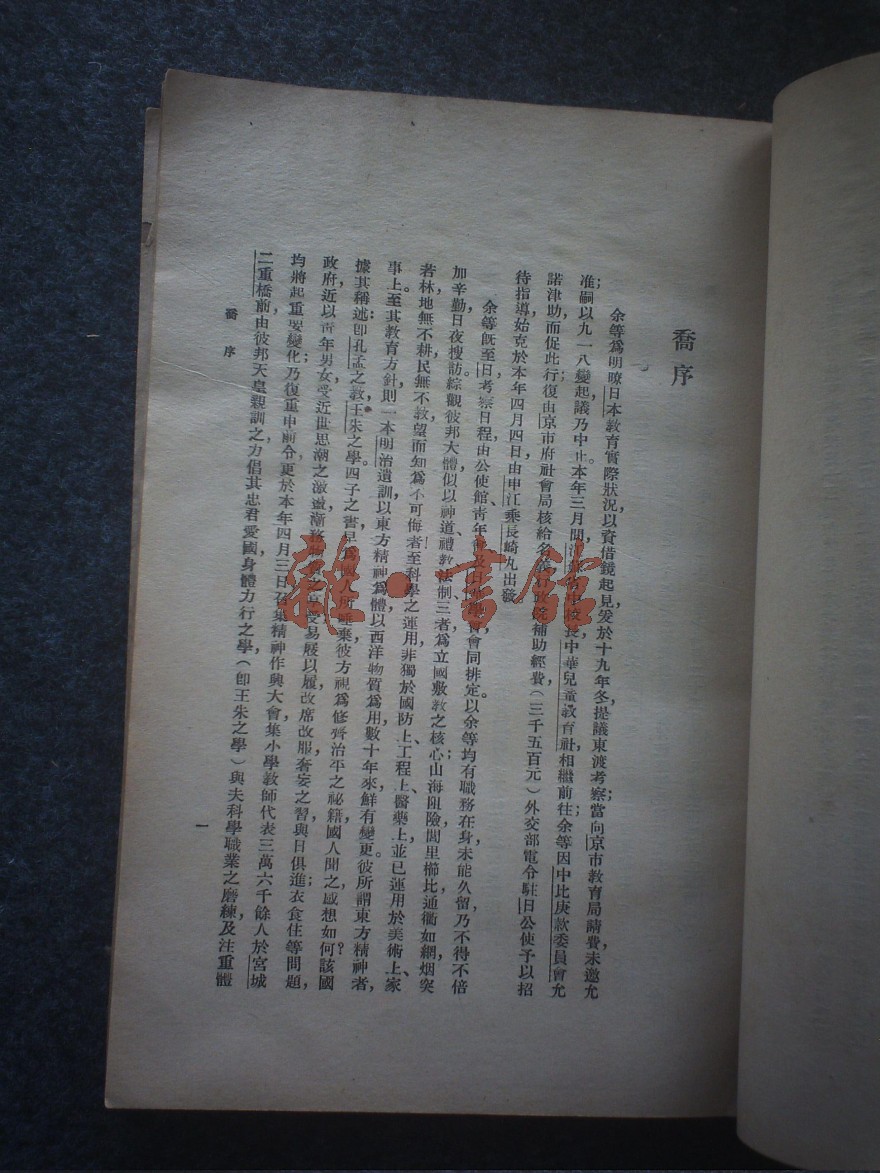 喬序
余等爲明瞭日本教育實際狀況以資借鏡起見，爰於十九年冬，提議東渡考察；當向京市教育局請費，未邀允
准；嗣以九一八變起，議乃中止。本年三月間，校長中華兒童教育社相繼前往，余等因中比庚款委員會允
諾津助，而促此行；復由京市府社會局核給名義，補助經費（三千五百元）外交部電令駐日公使予以招
待指導，始克於本年四月四日由申江乘長崎丸出發。
余等旣至日，考察日程由公使館、靑年會及日會同排定。以余等均有職務在身，未能久留，乃不得不倍
加辛勤，日夜搜訪，綜觀彼邦大體，似以神道、禮教、法制三者，爲立國敷教之核心；山海阻險，閭里櫛比，通衢如網，烟突
若林，地無不耕，民無不教，望而知爲不可侮者！至科學之運用，非獨於國防上、工程上、醫藥上，並已運用於美術上、家
事上。至其教育方針，則一本明治遺訓，以東方精神爲體，以西洋物質爲用，數十年來，鮮有變更。彼所謂東方精神者，
據其稱述：卽孔孟之教，王朱之學。四子之書，早爲國人所唾棄，彼方視爲修齊治平之秘籍，國人聞之，感想如何？該國
政府近以靑年男女，受近世思潮之激盪，漸務物質之享受，易屐以履，改席改服，奢妄之習，與日俱進；衣食住等問題，
均將起重要變化；乃復重申前令，更於本年四月三日，召集精神作興大會，集小學教師代表三萬六千餘人，於宮城
二重橋前，由彼邦天皇親訓之，力倡其忠君愛國身體力行之學（卽王朱之學）與夫科學職業之磨練，及注重體
喬序
一
雜·書館